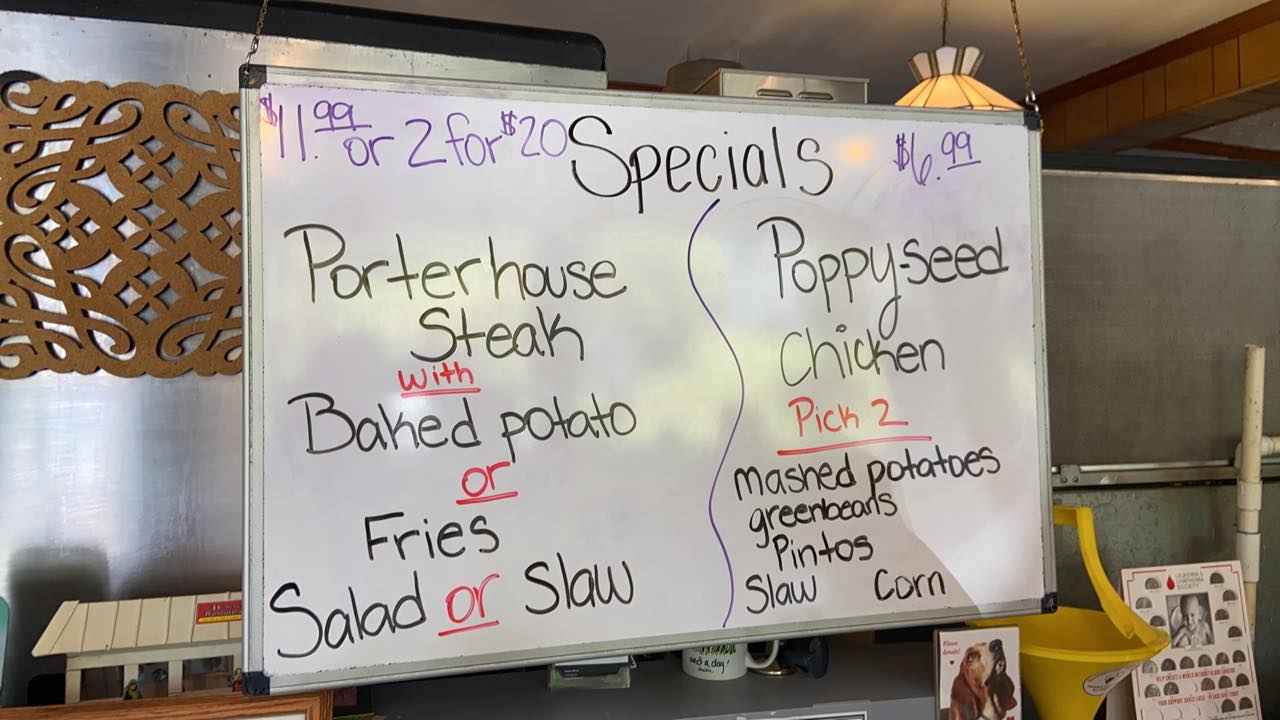 $11.99 or 2 for $20
Specials
$6.99
Porterhouse
Steak
with
Baked potato
or
Fries
Salad or Slaw
Poppy-seed
Chicken
Pick 2
mashed potatoes
greenbeans
Pintos
Slaw Corn
and a dog!
Please
donate!
LEUKEMIA &
LYMPHOMA
SOCIETY
HELP CREATE A WORLD WITHOUT BLOOD CANCERS